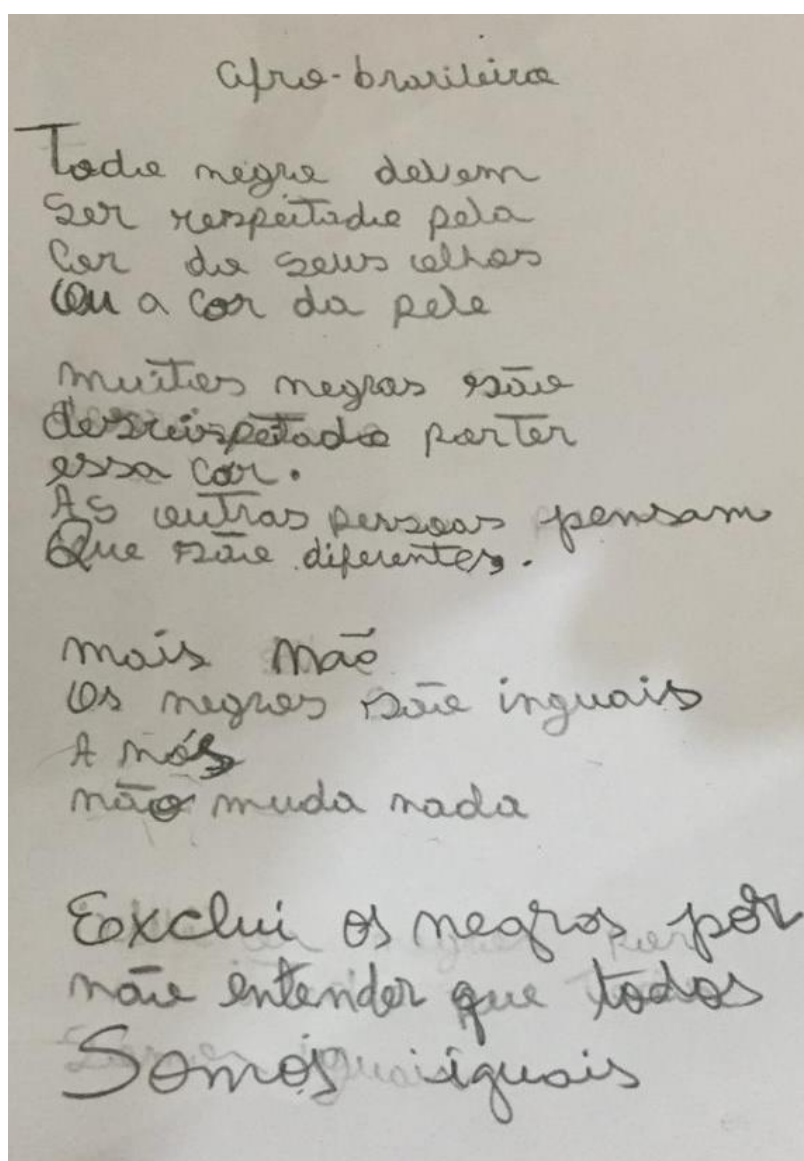 Afro-brasileiro
Todo negro devem
Ser respeitado pela
Cor do seus olhos
Ou a cor da pele
muitos negros são
desreispetado por ter
essa cor.
As outras pessoas pensam
Que são diferentes.
mais não
Os negros são inguais
A nós
não muda nada
Exclui os negros por
não entender que todos
Somos iguais